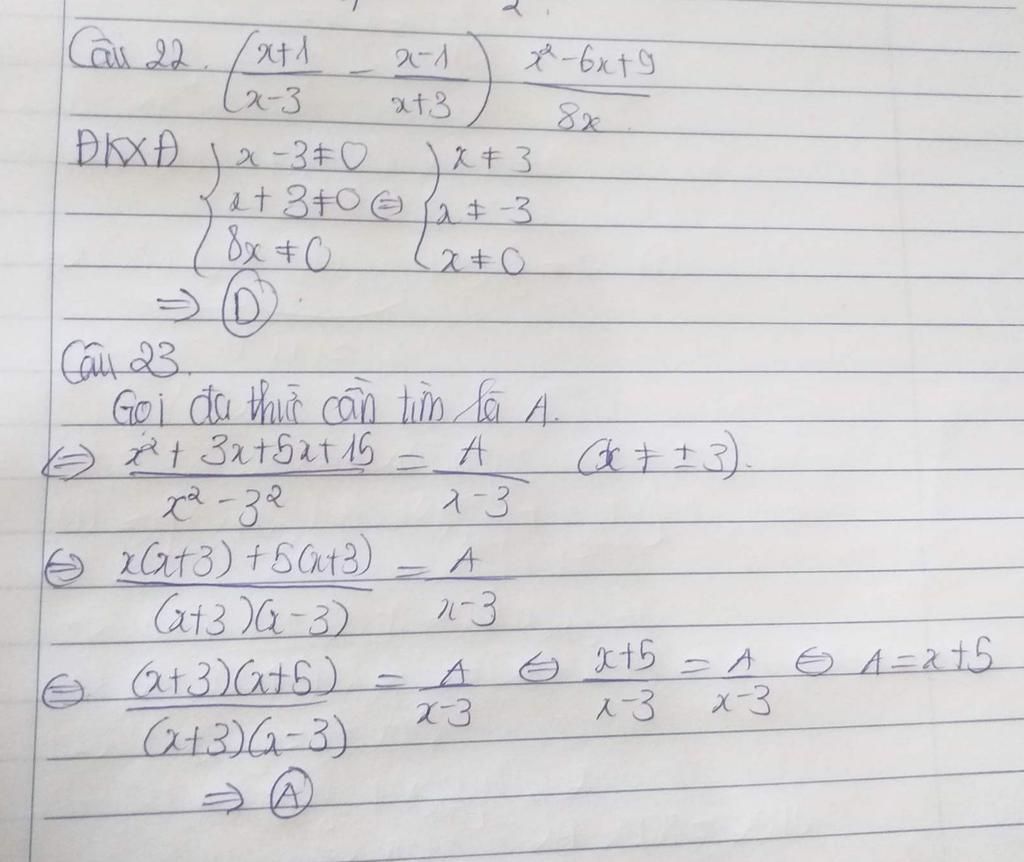 Câu 22. (x+1/x-3 - x-1/x+3) x²-6x+9/8x
ĐKXĐ { x-3≠0 { x≠3
x+3≠0 ⇔ x≠-3
8x≠0 x≠0
⇒ D
Câu 23.
Gọi đa thức cần tìm là A.
⇔ x²+3x+5x+15/x²-3² = A/x-3 (x≠±3).
⇔ x(x+3)+5(x+3)/(x+3)(x-3) = A/x-3
⇔ (x+3)(x+5)/(x+3)(x-3) = A/x-3 ⇔ x+5/x-3 = A/x-3 ⇔ A=x+5
⇒ A